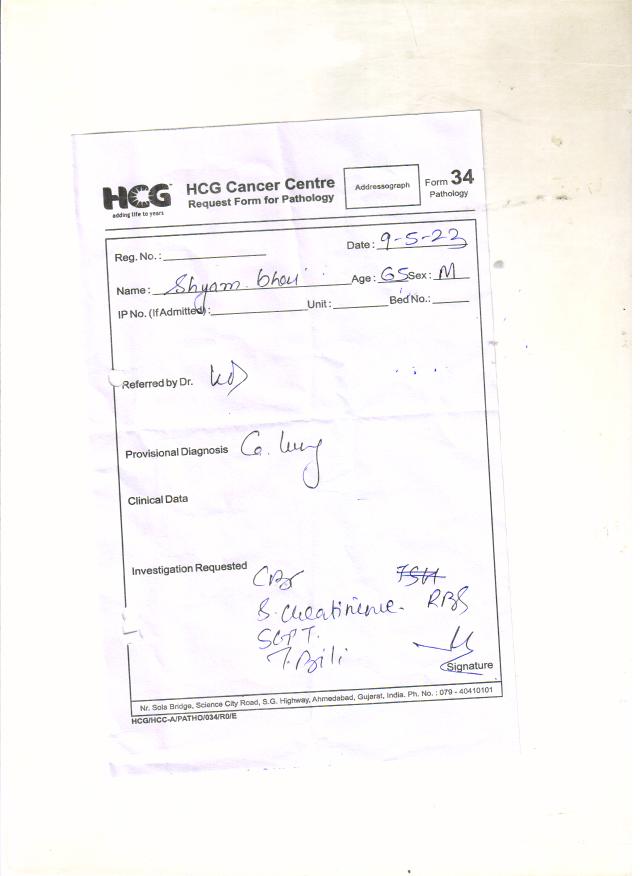 HCG
adding life to years
HCG Cancer Centre
Request Form for Pathology
Addressograph
Form 34
Pathology
Reg. No.:
Date: 9-5-22
Name: Shyam bhai Age: 65 Sex: M
IP No. (If Admitted): Unit: Bed No.:
Referred by Dr.
Provisional Diagnosis Ca. lung
Clinical Data
Investigation Requested
CBC TSH
S. Creatinine. RBS
SGPT.
T. Bili
Signature
Nr. Sola Bridge, Science City Road, S.G. Highway, Ahmedabad, Gujarat, India. Ph. No. : 079 - 40410101
HCG/HCC-A/PATHO/034/R0/E